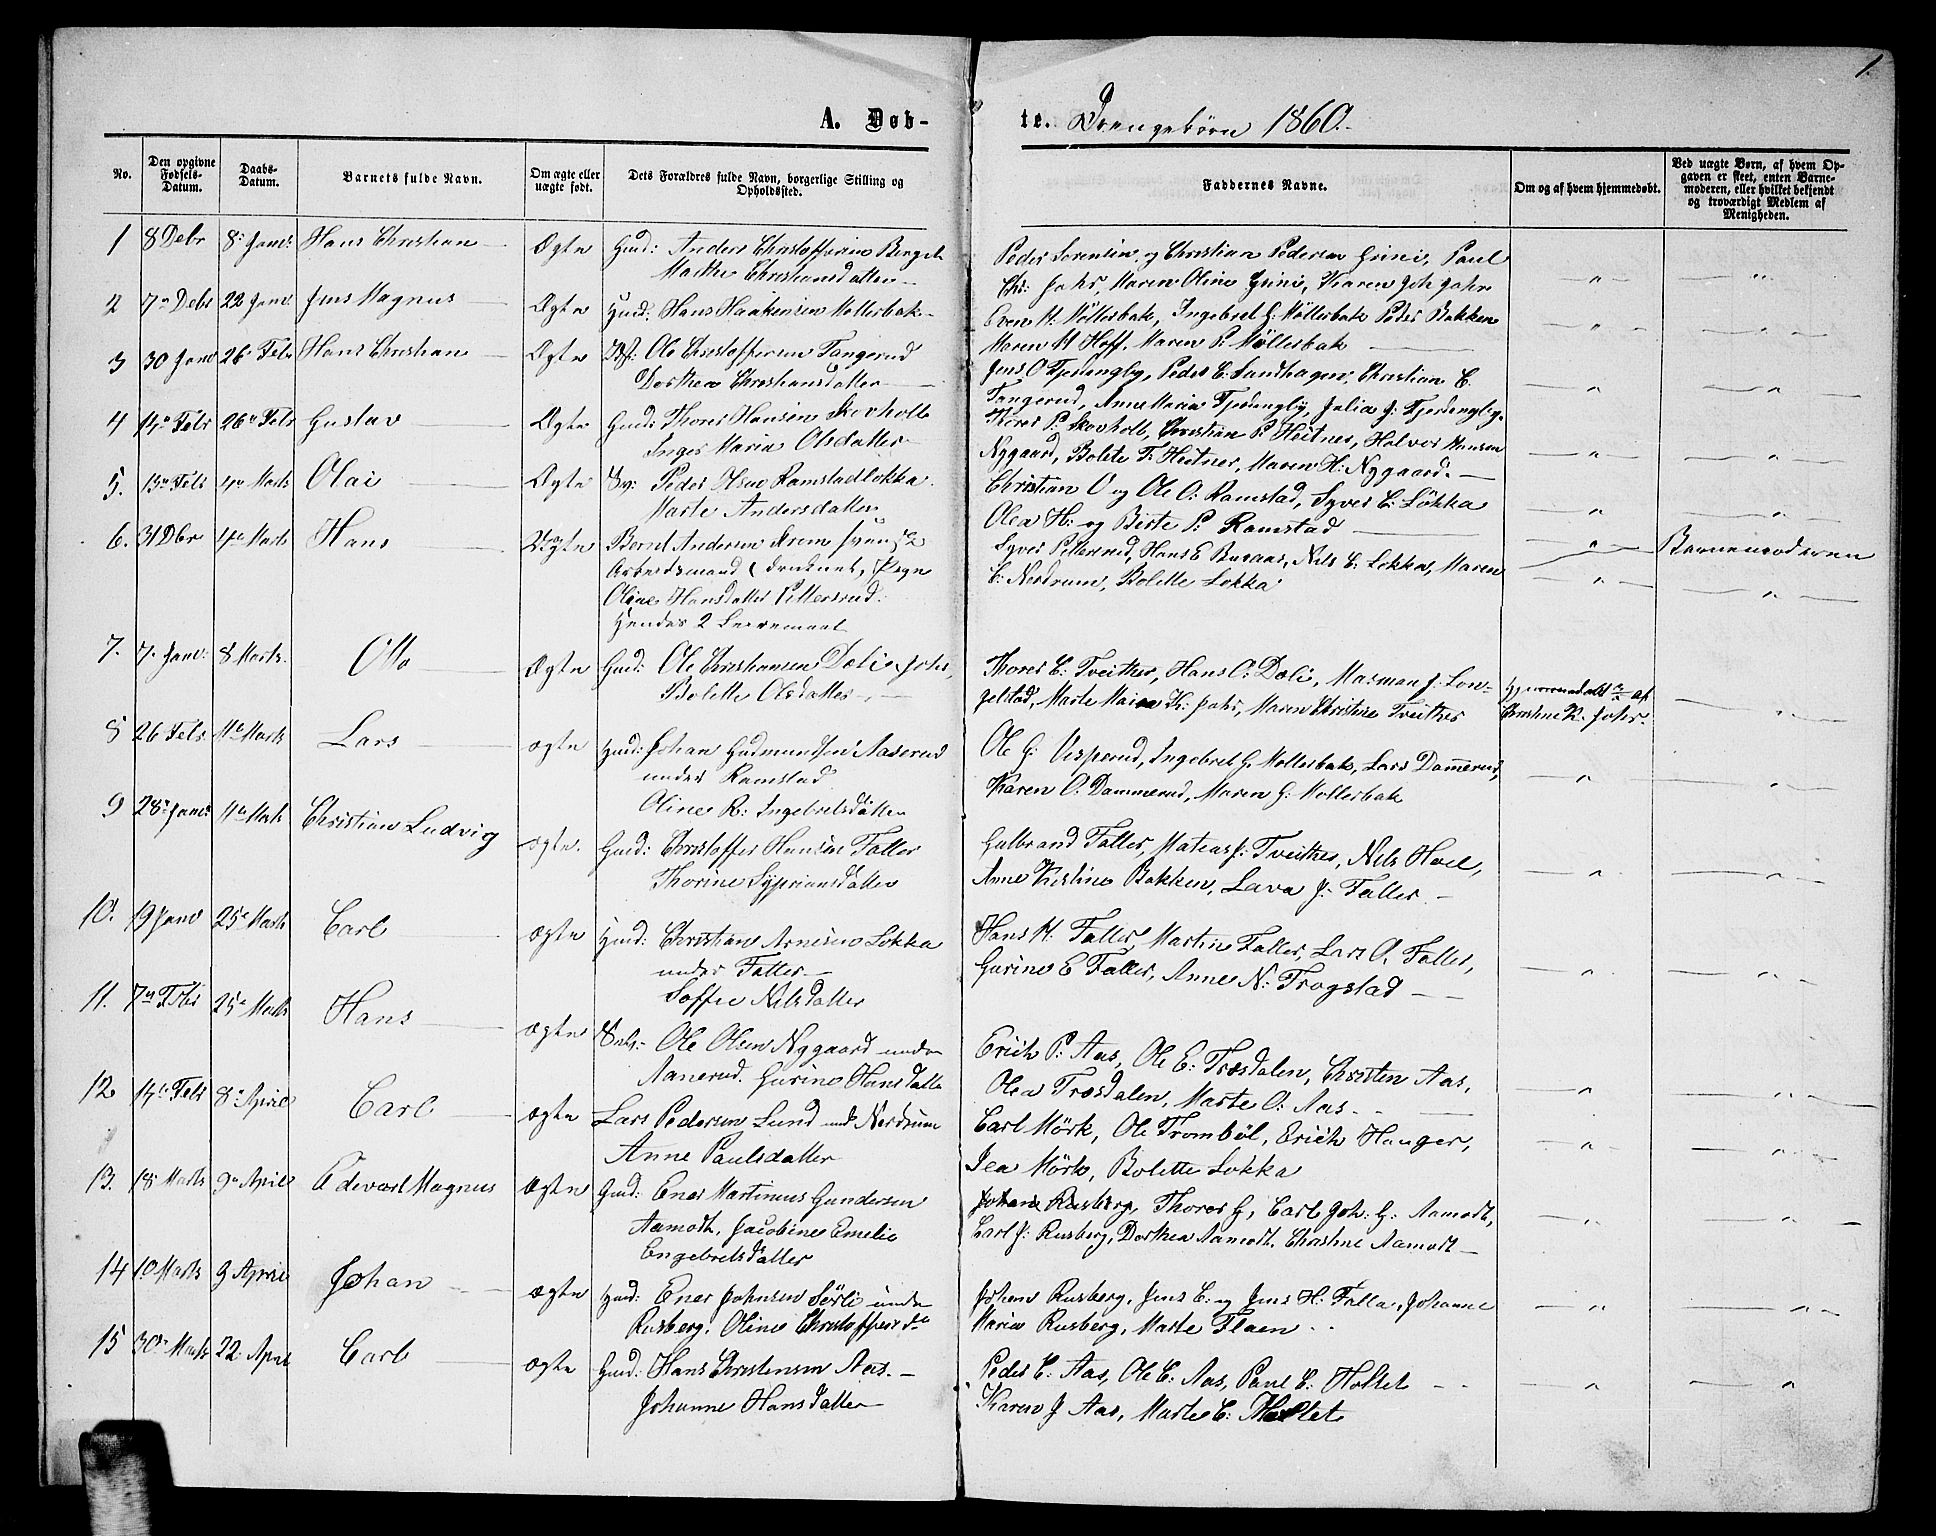 1.
A. Døb-
te. Drengebørn 1860.
No.
Den opgivne Fødsels-Datum.
Daabs-Datum.
Barnets fulde Navn.
Om ægte eller uægte født.
Dets Forældres fulde Navn, borgerlige Stilling og Opholdssted.
Faddernes Navne.
Om og af hvem hjemmedøbt.
Ved uægte Børn, af hvem Opgaven er skeet, enten Barnemoderen, eller hvilket bekjendt og troværdigt Medlem af Menigheden.
1 8 Debr 8 Janr Hans Christian Ægte Gmd: Anders Christoffersen
Marthe Christiansdatter
Peder Sorensen og Christian Pedersen Grini, Paul
Chr: Jahr, Maren Oline Grini, Karen Joh Jahr
2 7 Debr 22 Janr Jens Magnus Ægte Hmd: Hans Haakensen Mollerbak
Even H. Möllerbak, Ingebret G Möllerbak Peder Bakken
Maren H Hoff, Maren P. Möllerbak
3 30 Janr 26 Febr Hans Christian Ægte Ole Christoffersen Tangerud
Dorthea Christiansdatter
Jens O Fjedengby, Peder C. Sandhagen, Christian C.
Tangerud, Anne Maria Fjedengby, Julia J: Fjedengby
4 14 Febr 26 Febr Gustav Ægte Gmd: Thorer Hansen Skovholt
Inger Maria Olsdatter
Thorer P: Skovholt, Christian P. Heitner, Halvor Hansen
Nygaard, Bolete T: Heitner, Maren H: Nygaard.
5. 13 Febr 4 Marts Olai Ægte Peder Ramstadlokka
Marte Andersdatter
Christian O og Ole O: Ramstad, Syver C: Lökka
Olea H: og Birte P: Ramstad
6. 31 Dbr 4 Marts Hans Uægte Bernt Andersen
Arbeidsmand i Pige
Oline Hansdatter Pittersrud.
Hendes 2 Leiermaal
Syver Pittersrud, Hans E Buraas, Nils C: Lokka, Maren
C: Nordrum, Bolette Lokka
Barnemoderen
7. 7 Janr 8 Marts Otto Ægte Gmd: Ole Christiansen Dæli Jahr,
Bolette Olsdatter
Thorer C: Tveither, Hans O: Dæli, Masman J: Lon-
gelstad, Marte Maria K: Jahr, Maren Christine Tveither
Christine K. Jahr
8 26 Febr 11 Marts Lars ægte Hmd: Johan Gudmundsen Aaserud
under Ramstad
Oline R: Ingebretsdatter
Ole G: Visperud, Ingebret G. Mollerbak, Lars Dammerud,
Karen O. Dammerud, Maren G: Mollerbak
9 28 Janr 11 Marts Christian Ludvig ægte. Gmd: Christoffer Hansen Faller
Thorine Sypriansdatter
Gulbrand Faller, Matias J: Tveither, Nils Hoel,
Anne Kirstine Bakken, Lava J: Faller
10. 19 Janr 25 Marts Carl ægte Hmd: Christian Arnesen Lokka
under Faller
Soffie Nilsdatter
Hans H. Faller, Martin Faller, Lars O. Faller,
Gurine E Faller, Anne N: Trogstad
11. 7 Febr 25 Marts Hans ægte Ole Olsen Nygaard under
Aanerud. Gurine Hansdatter
Erich P: Aas, Ole E: Træsdalen, Christen Aas,
Olea Træsdalen, Marte O: Aas.
12 14 Febr 8 April Carl ægte Lars Pedersen Lund und Nordrum
Anne Paulsdatter
Carl Mörk, Ole Trombøl, Erich Hauger,
Iea Mörk, Bolette Lokka
13. 18 Marts 9 April Edevart Magnus Ægte Gmd: Ener Martinus Gundersen
Aamodt, Jacobine Emelie
Engebretsdatter
Johan Rusberg, Thorer G, Carl Joh: G: Aamodt,
Carl J: Rusberg, Dorthea Aamodt, Christine Aamodt
14 10 Marts 9 April Johan ægte Hmd: Ener Johnsen Sörli under
Rusberg. Oline Christoffersd
Johan Rusberg, Jens C: og Jens H: Falla, Johanne
Maria Rusberg, Marte Flaen
15 30 Marts 22 April Carl ægte Gmd: Hans Christensen Aas.
Johanne Hansdatter
Peder C. Aas, Ole C. Aas, Paul C: Holtet
Karen J Aas, Marte C: Holtet